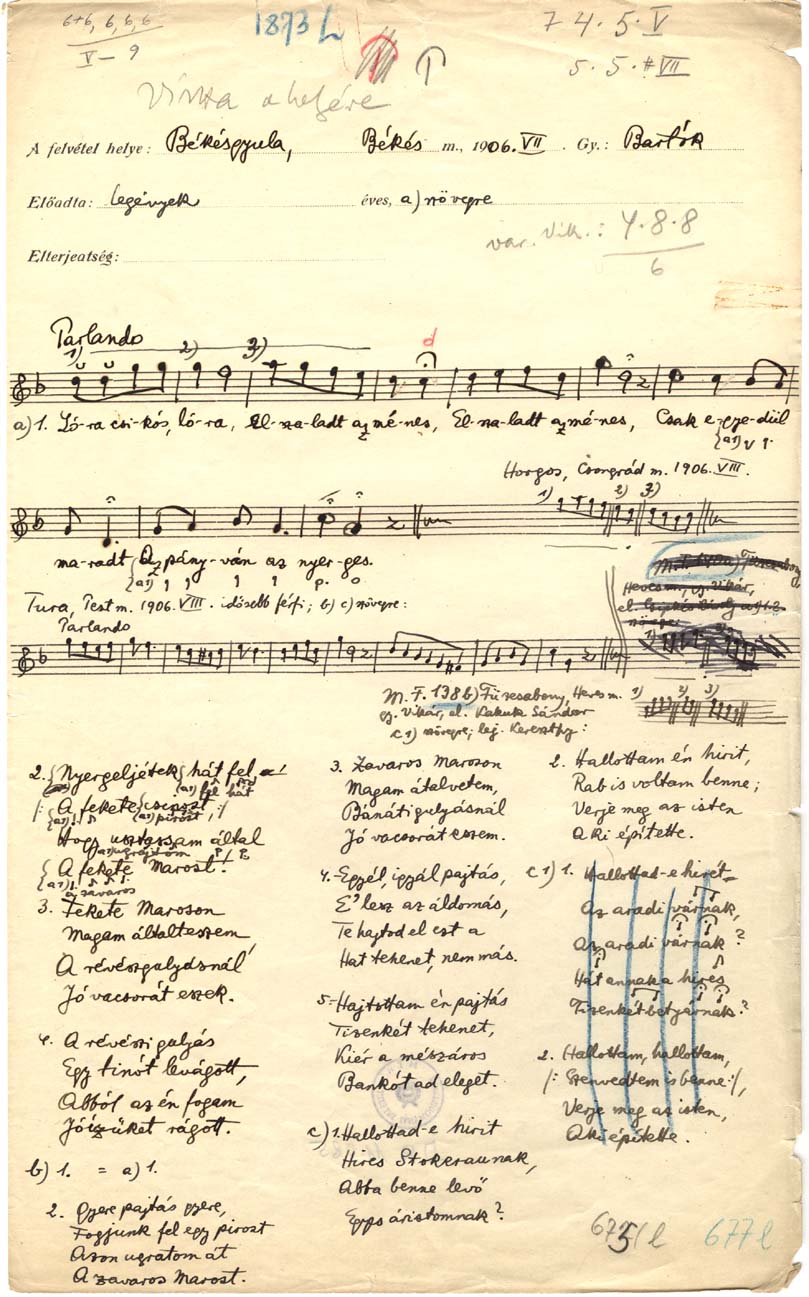 6+6, 6, 6, 6
V – 9
1873 L
7 4. 5. V
5. 5. #VII
Vissza a helyére
A felvétel helye: Békésgyula, Békés m., 1906. VII. Gy.: Bartók
Előadta: legények éves, a) szövegre
var. Vik.: 4.8.8
6
Elterjeatség:
Parlando
1) 2) 3) d
a) 1. Ló-ra csi-kós, ló-ra, El-sza-ladt az mé-nes, El-sza-ladt az mé-nes, Csak e-gye-dül
{a1)
Horgos, Csongrád m. 1906. VIII.
1) 2) 3)
ma-radt Az pány-ván az nyer-ges.
{a1)
Tura, Pest m. 1906. VIII. idősebb férfi; b) c) szövegre:
Parlando
M. F. 1386) Füzesabony, Heves m. 1) 2) 3)
gy. Vikár, el. Kakuk Sándor
c1) szövegre; lej. Kereszthy:
2. {Nyergeljétek {hát fel
{a1) fel hát
/: A fekete {csipszt :/
{a1) pirost
Hogy usztassam által
{a1) ugrajtom
{A fekete Marost!
{a1) a zavaros
3. Fekete Maroson
Magam általteszem
A révészgulyásnál
Jó vacsorát eszek.
4. A révészi gulyás
Egy tinót levágott,
Abból az én fogam
Jóízüket rágott.
b) 1. = a) 1.
2. Gyere pajtás gyere,
Fogjunk fel egy pirost
Azon ugratom át
A zavaros Marost.
3. Zavaros Maroson
Magam átalvetem,
Bánáti gulyásnál
Jó vacsorát eszem.
4. Egyél, igyál pajtás,
E' lesz az áldomás,
Te hajtod el ezt a
Hat tehenet, nem más.
5. Hajtottam én pajtás
Tizenkét tehenet,
Kiér a mészáros
Bankót ad eleget.
c) 1. Hallottad-e hirit
Hires Stokeraunak,
Abba benne levő
Egyp áristomnak?
2. Hallottam én hirit,
Rab is voltam benne;
Verje meg az isten
Aki épitette.
c1) 1. Hallottad-e hirét
Az aradi várnak,
Az aradi várnak?
Hát annak a hires
Tizenkét betyárnak?
2. Hallottam, hallottam,
/: Szenvedtem is benne :/,
Verje meg az isten,
Aki épitette.
675/l 677 l